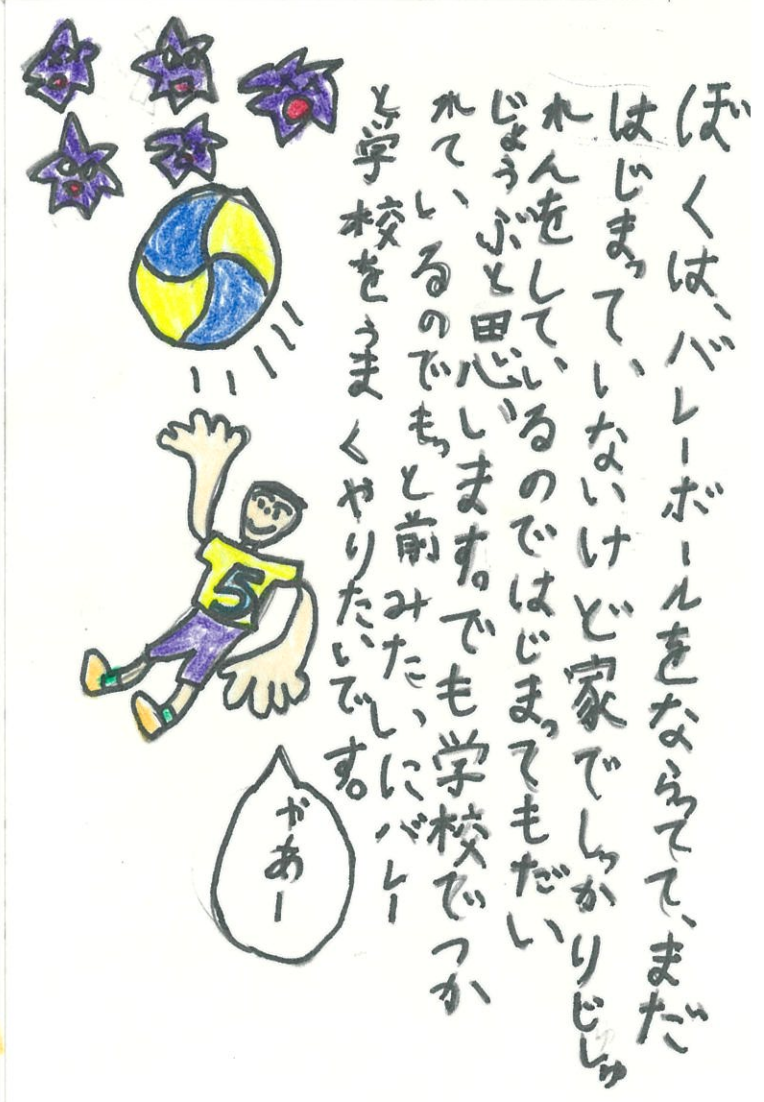 ぼくは、バレーボールをならってて、まだ
はじまっていないけど家でしっかりじしゅ
れんをしているのではじまってもだい
じょうぶと思います。でも学校でつか
れているのでもっと前みたいにバレー
と学校をうまくやりたいです。
5
やあー